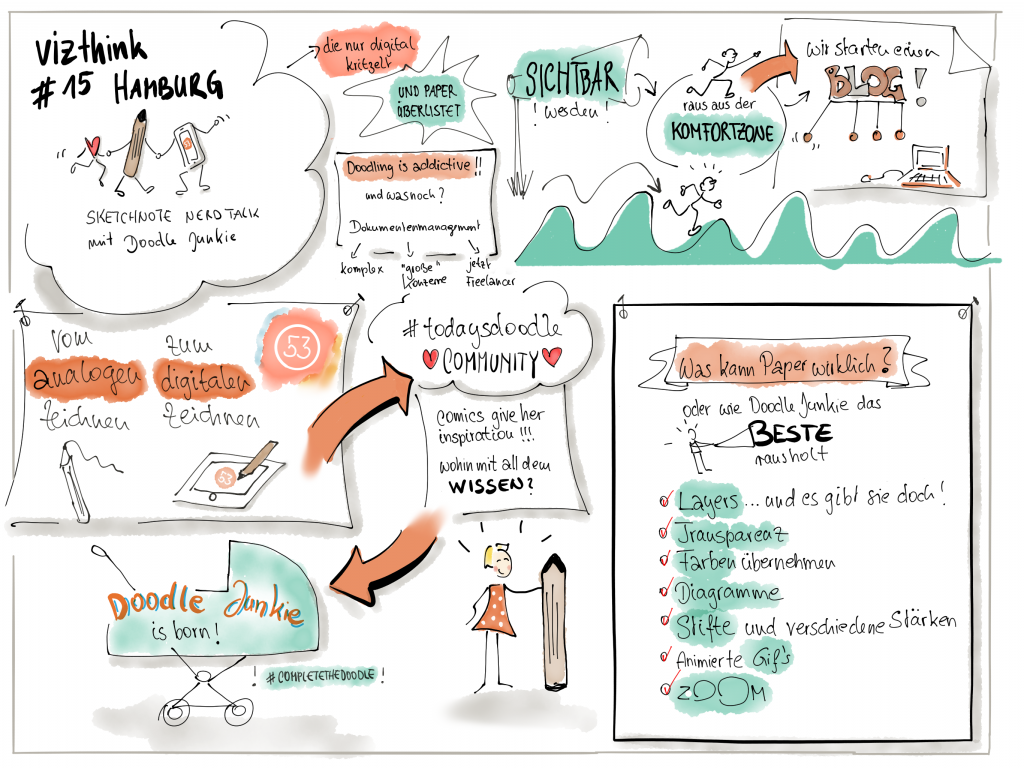 vizthink
#15 HAMBURG
SKETCHNOTE NERD TALK
mit Doodle Junkie
die nur digital
kritzelt
UND PAPER
ÜBERLISTET
Doodling is addictive!!
und was noch?
Dokumentenmanagement
komplex
"große"
Konzerne
jetzt
Freelancer
SICHTBAR
! werden!
raus aus der
KOMFORTZONE
wir starten einen
BLOG!
vom
analogen
zeichnen
zum
digitalen
zeichnen
53
53
#todaysdoodle
COMMUNITY
comics give her
inspiration!!!
wohin mit all dem
WISSEN?
Doodle Junkie
is born!
! #COMPLETETHEDOODLE !
Was kann Paper wirklich?
oder wie Doodle Junkie das
BESTE
rausholt
Layers ... und es gibt sie doch!
Transparenz
Farben übernehmen
Diagramme
Stifte und verschiedene Stärken
Animierte Gif's
ZOOM